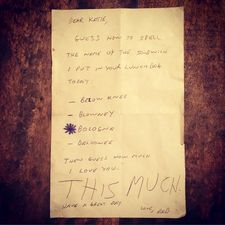 DEAR KATIE,
GUESS HOW TO SPELL
THE NAME OF THE SANDWICH
I PUT IN YOUR LUNCH BAG
TODAY:
- BELOW KNEE
- BLOWNEY
- BOLOGNA
- BELOWNEE
THEN GUESS HOW MUCH
I LOVE YOU.
THIS MUCH.
HAVE A GREAT DAY.
LOVE, DAD